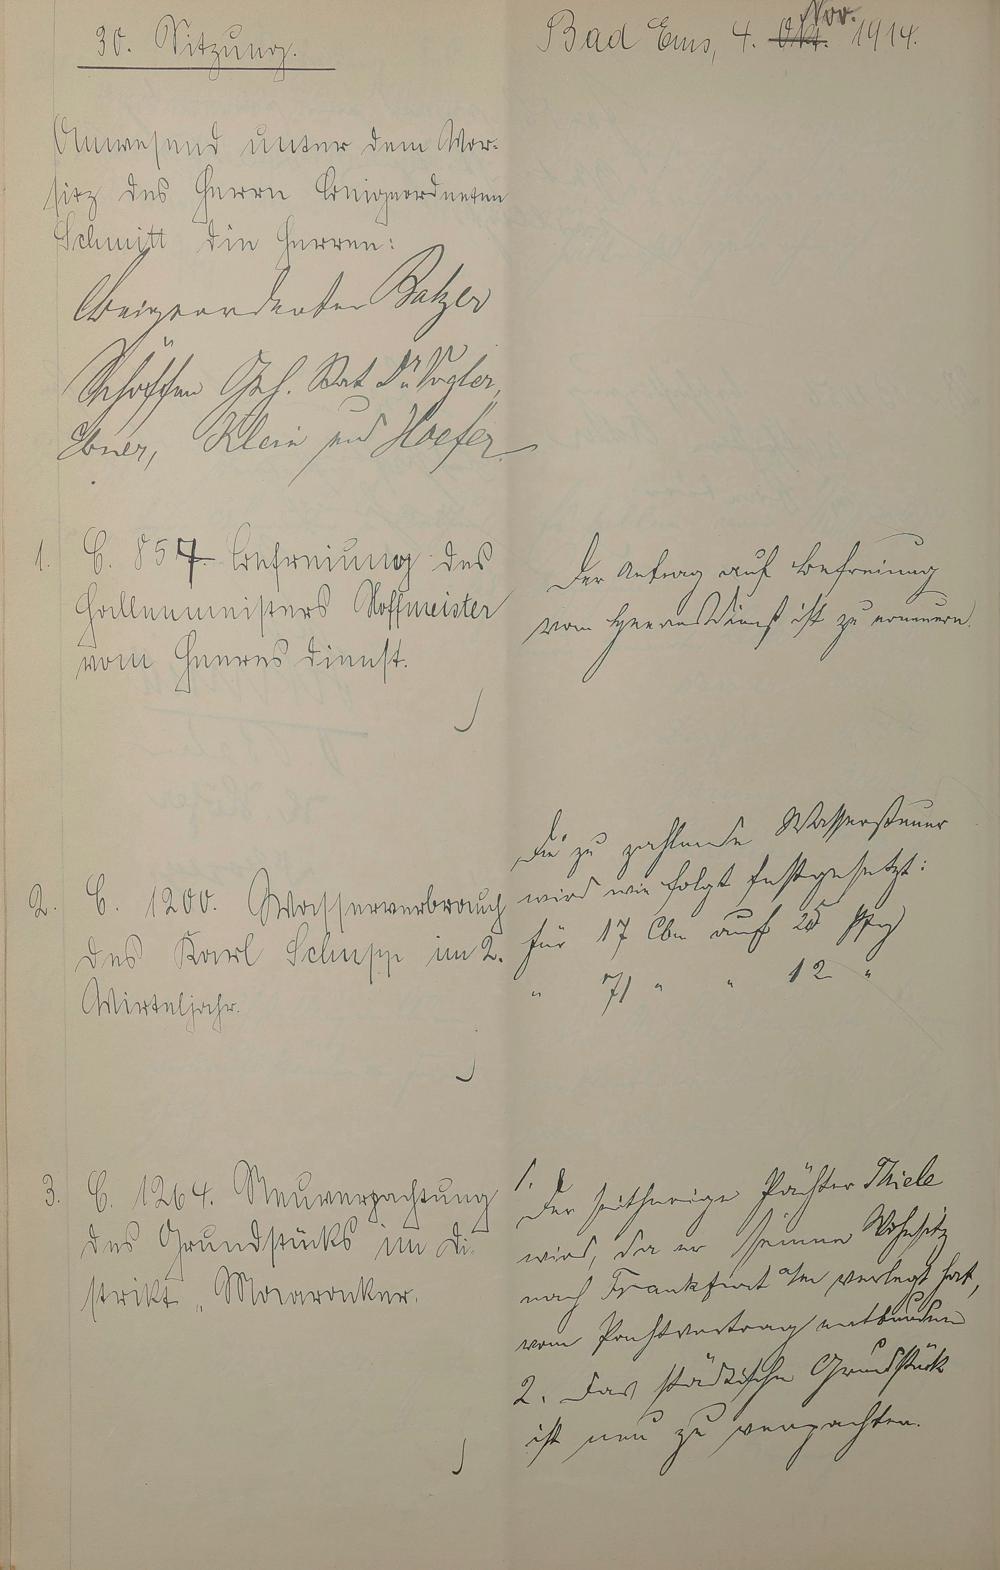 30. Sitzung.
Bad Ems, 4. Okt. Nov. 1914.
Anwesend unter dem Vor-
sitz des Herrn Beigeordneten
Schmitt die Herren:
Beigeordneter Balzer
Schöffen Geh. Rat Dr. Vogler,
Ebner, Klein und Hoefer
1. C. 857. Befreiung des
Hallenmeisters Hoffmeister
vom Heeresdienst.
Der Antrag auf Befreiung
vom Heeresdienst ist zu erneuern.
2. C. 1200. Wasserverbrauch
des Karl Schupp im 2.
Vierteljahr.
Die zu zahlende Wassersteuer
wird wie folgt festgesetzt:
für 17 Cbm auf 25 Pfg
" 71 " " 12 "
3. C. 1264. Neuverpachtung
des Grundstücks im Di-
strikt „
1. Der seitherige Pächter Thiele
wird, da er seinen Wohnsitz
nach Frankfurt a/m verlegt hat,
vom Pachtvertrag entbunden
2. Das städtische Grundstück
ist neu zu verpachten.